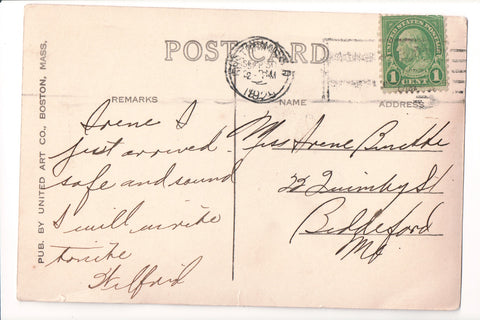 POST CARD
UNITED STATES POSTAGE
1 CENT 1
PUB. BY UNITED ART CO., BOSTON, MASS.
REMARKS
NAME
ADDRESS
Irene I
just arrived
safe and sound
I will write
tonite
Wilfrid
Miss Irene
22 Quimby St
Biddeford
Me